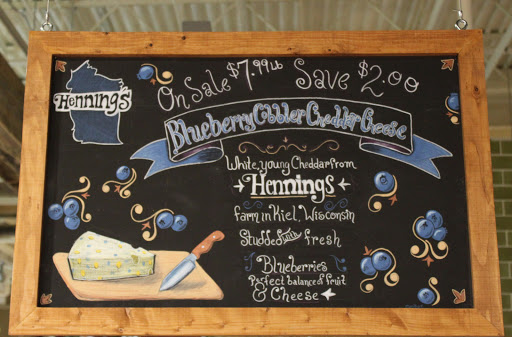 Henning's
On Sale $7.99 lb Save $2.00
Blueberry Cobbler Cheddar Cheese
White, young Cheddar from
Hennings
farm in Kiel, Wisconsin
Studded with fresh
Blueberries
Perfect balance of fruit
& Cheese